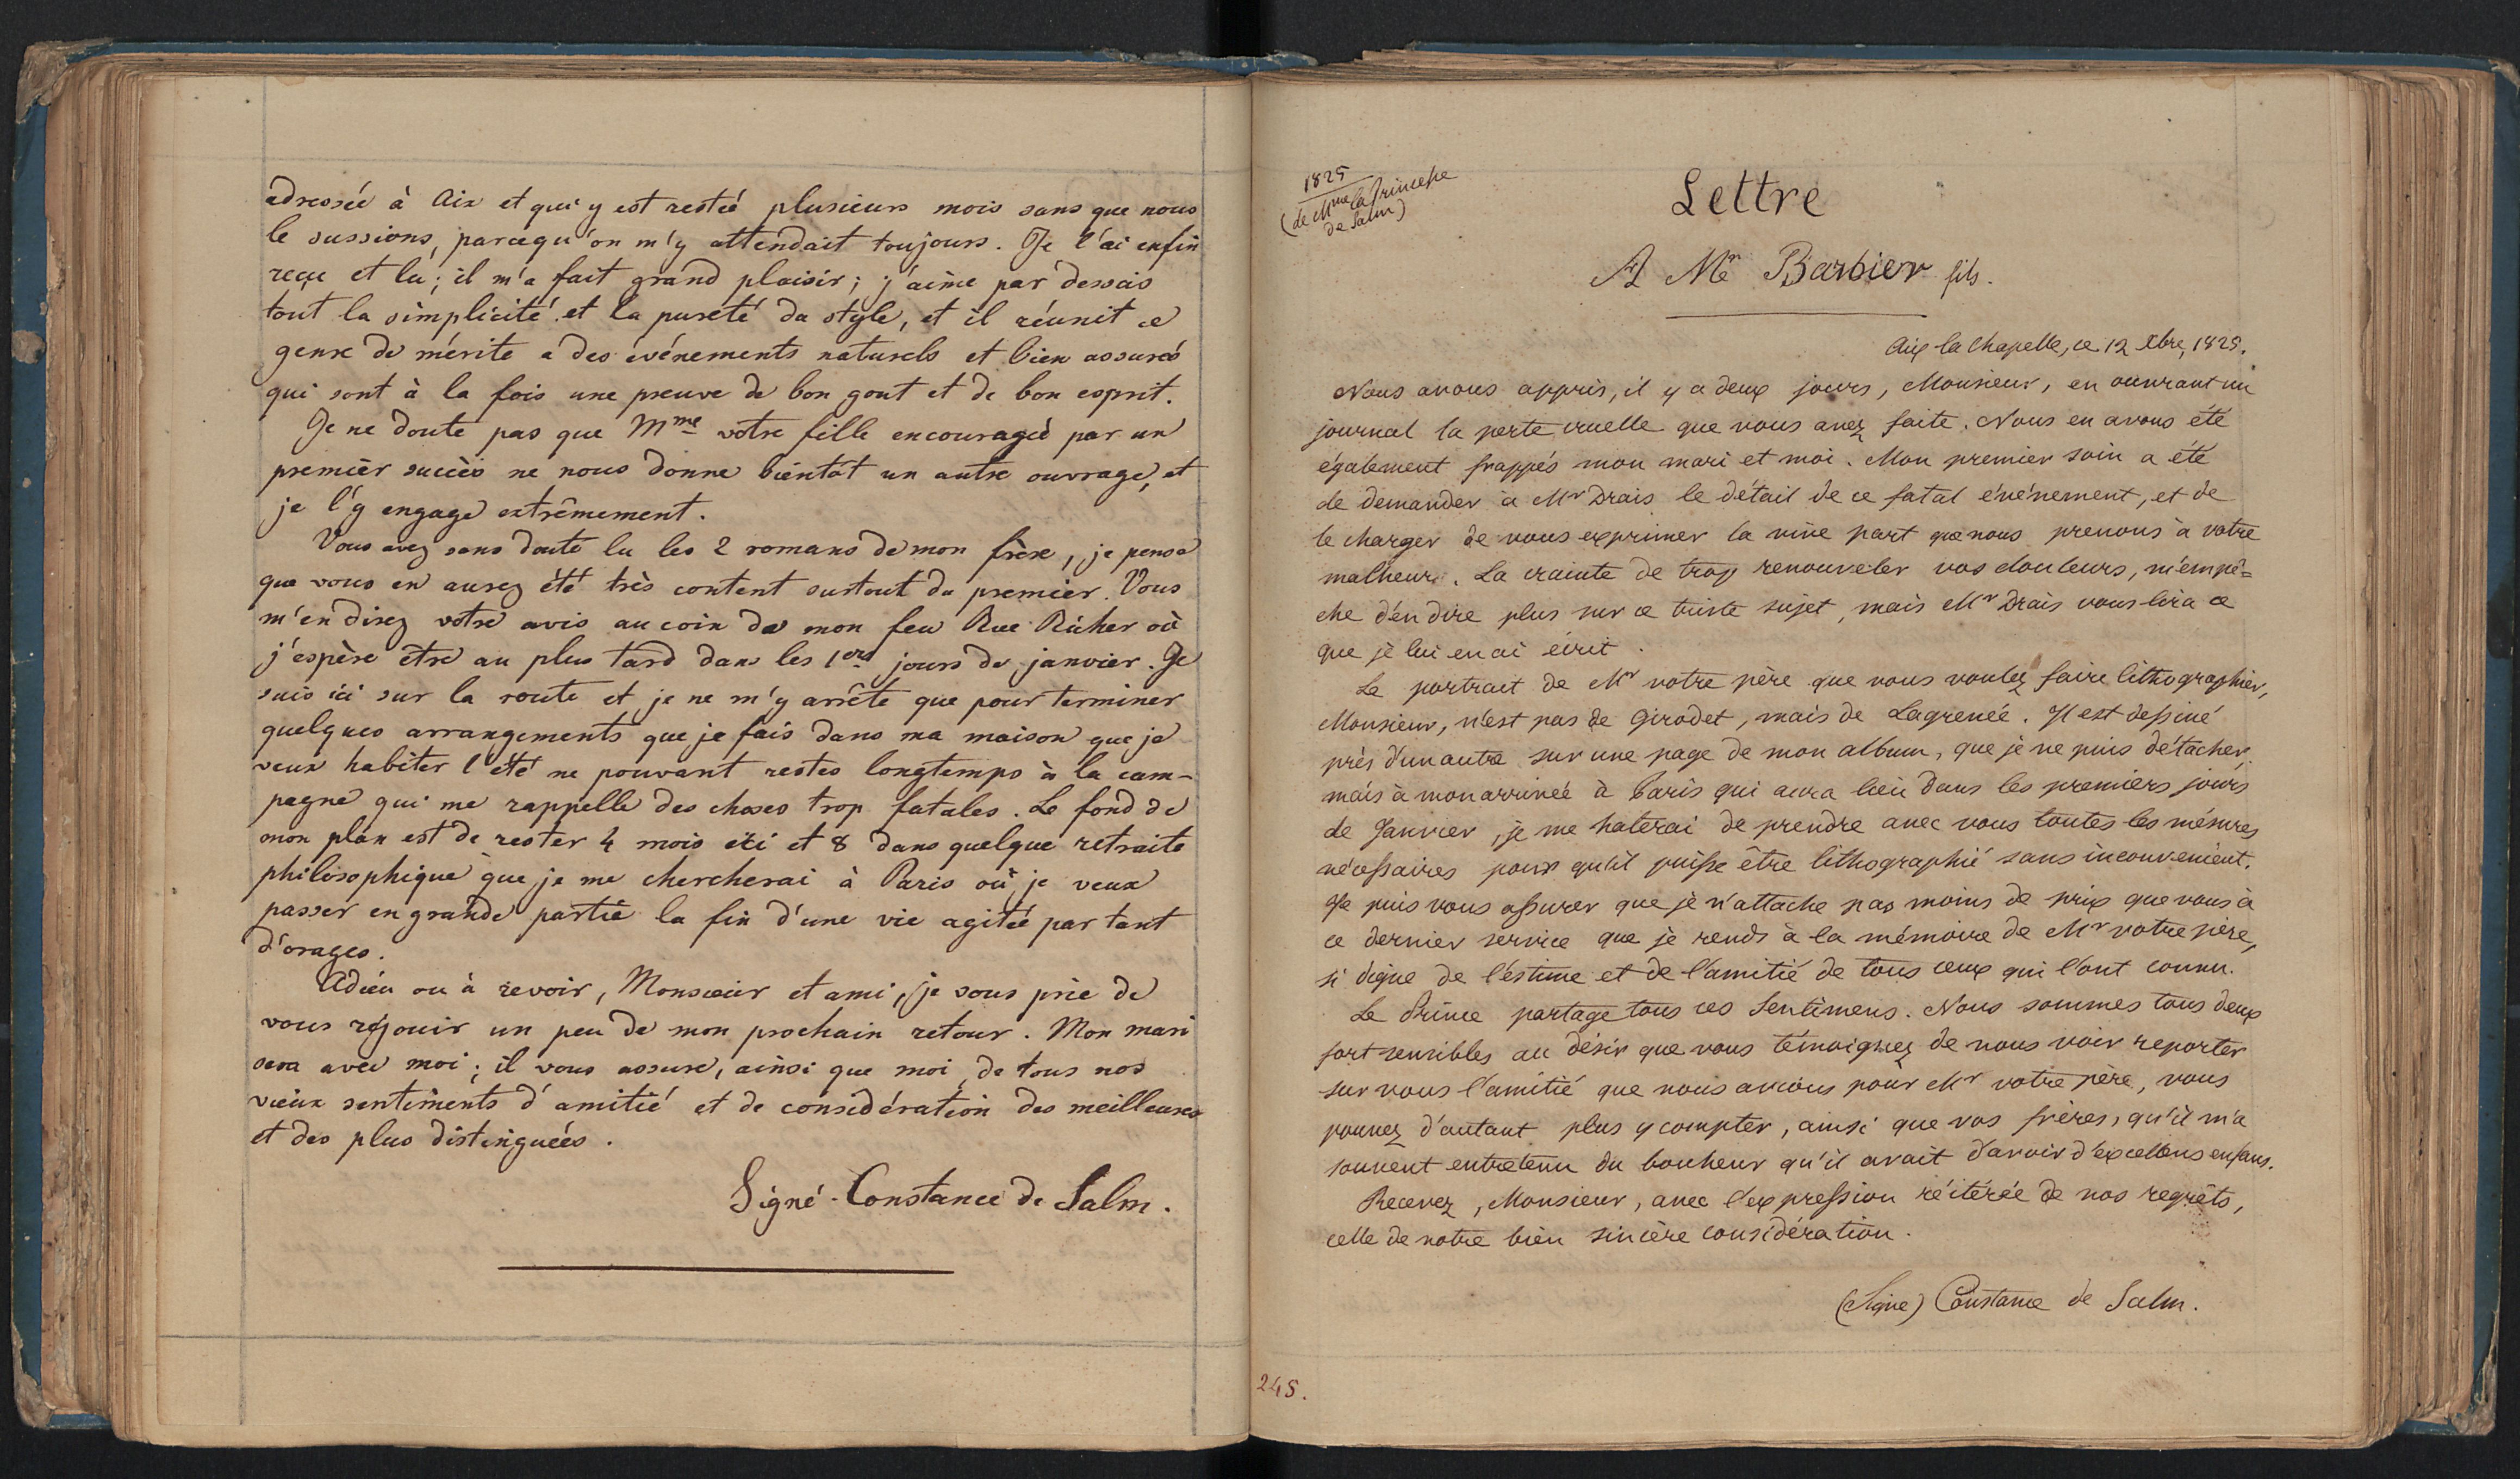 adressée à Aix et qui y est restée plusieurs mois sans que nous
le sussions, parcequ'on m'y attendait toujours. Je l'ai enfin
reçu et lu; il m'a fait grand plaisir; j'aime par dessus
tout la simplicité et la pureté du style, et il réunit ce
genre de mérite a des événements naturels et bien assurés
qui sont à la fois une preuve de bon gout et de bon esprit.
Je ne doute pas que Mme votre fille encouragée par un
premier succès ne nous donne bientôt un autre ouvrage, et
je l'y engage extrêmement.
Vous avez sans doute lu les 2 romans de mon frère, je pense
que vous en aurez été très content surtout du premier. Vous
m'en direz votre avis au coin de mon feu Rue Richer où
j'espère être au plus tard dans les 1ers jours de janvier. Je
suis ici sur la route et je ne m'y arrête que pour terminer
quelques arrangements que je fais dans ma maison que je
veux habiter l'été ne pouvant rester longtemps à la cam-
pagne qui me rappelle des choses trop fatales. Le fond de
mon plan est de rester 4 mois ici et 8 dans quelque retraite
philosophique que je me chercherai à Paris où je veux
passer en grande partie la fin d'une vie agitée par tant
d'orages.
Adieu ou à revoir, Monsieur et ami, je vous prie de
vous réjouir un peu de mon prochain retour. Mon mari
sera avec moi; il vous assure, ainsi que moi, de tous nos
vieux sentiments d'amitié et de considération des meilleures
et des plus distinguées.
Signé - Constance de Salm.
1825
(de Mme la Princesse
de Salm)
Lettre
A Mr Barbier fils.
Aix la Chapelle, ce 12 Xbre, 1825.
Nous avons appris, il y a deux jours, Monsieur, en ouvrant un
journal la perte cruelle que vous avez faite. Nous en avons été
également frappés mon mari et moi. Mon premier soin a été
de demander à Mr Drais le détail de ce fatal événement, et de
le charger de vous exprimer la vive part que nous prenons à votre
malheur. La crainte de trop renouveler vos douleurs, m'empê=
che d'en dire plus sur ce triste sujet, mais Mr Drais vous lira ce
que je lui en ai écrit.
Le portrait de Mr votre père que vous voulez faire lithographier,
Monsieur, n'est pas de Girodet, mais de Lagrenée. Il est dessiné
près d'un autre sur une page de mon album, que je ne puis détacher,
mais à mon arrivée à Paris qui aura lieu dans les premiers jours
de Janvier, je me haterai de prendre avec vous toutes les mésures
nécessaires pour qu'il puisse être lithographié sans inconvenient.
Je puis vous assurer que je n'attache pas moins de prix que vous à
ce dernier service que je rends à la mémoire de Mr votre père,
si digne de l'éstime et de l'amitié de tous ceux qui l'ont connu.
Le Prince partage tous ces Sentimens. Nous sommes tous deux
fort sensibles au désir que vous témoignez de nous voir reporter
sur vous l'amitié que nous avions pour Mr votre père, vous
pouvez d'autant plus y compter, ainsi que vos frères, qu'il m'a
souvent entretenu du bonheur qu'il avait d'avoir d'excellens enfans.
Recevez, Monsieur, avec l'expression réitérée de nos regrêts,
celle de notre bien sincère considération.
(Signé) Constance de Salm.
245.